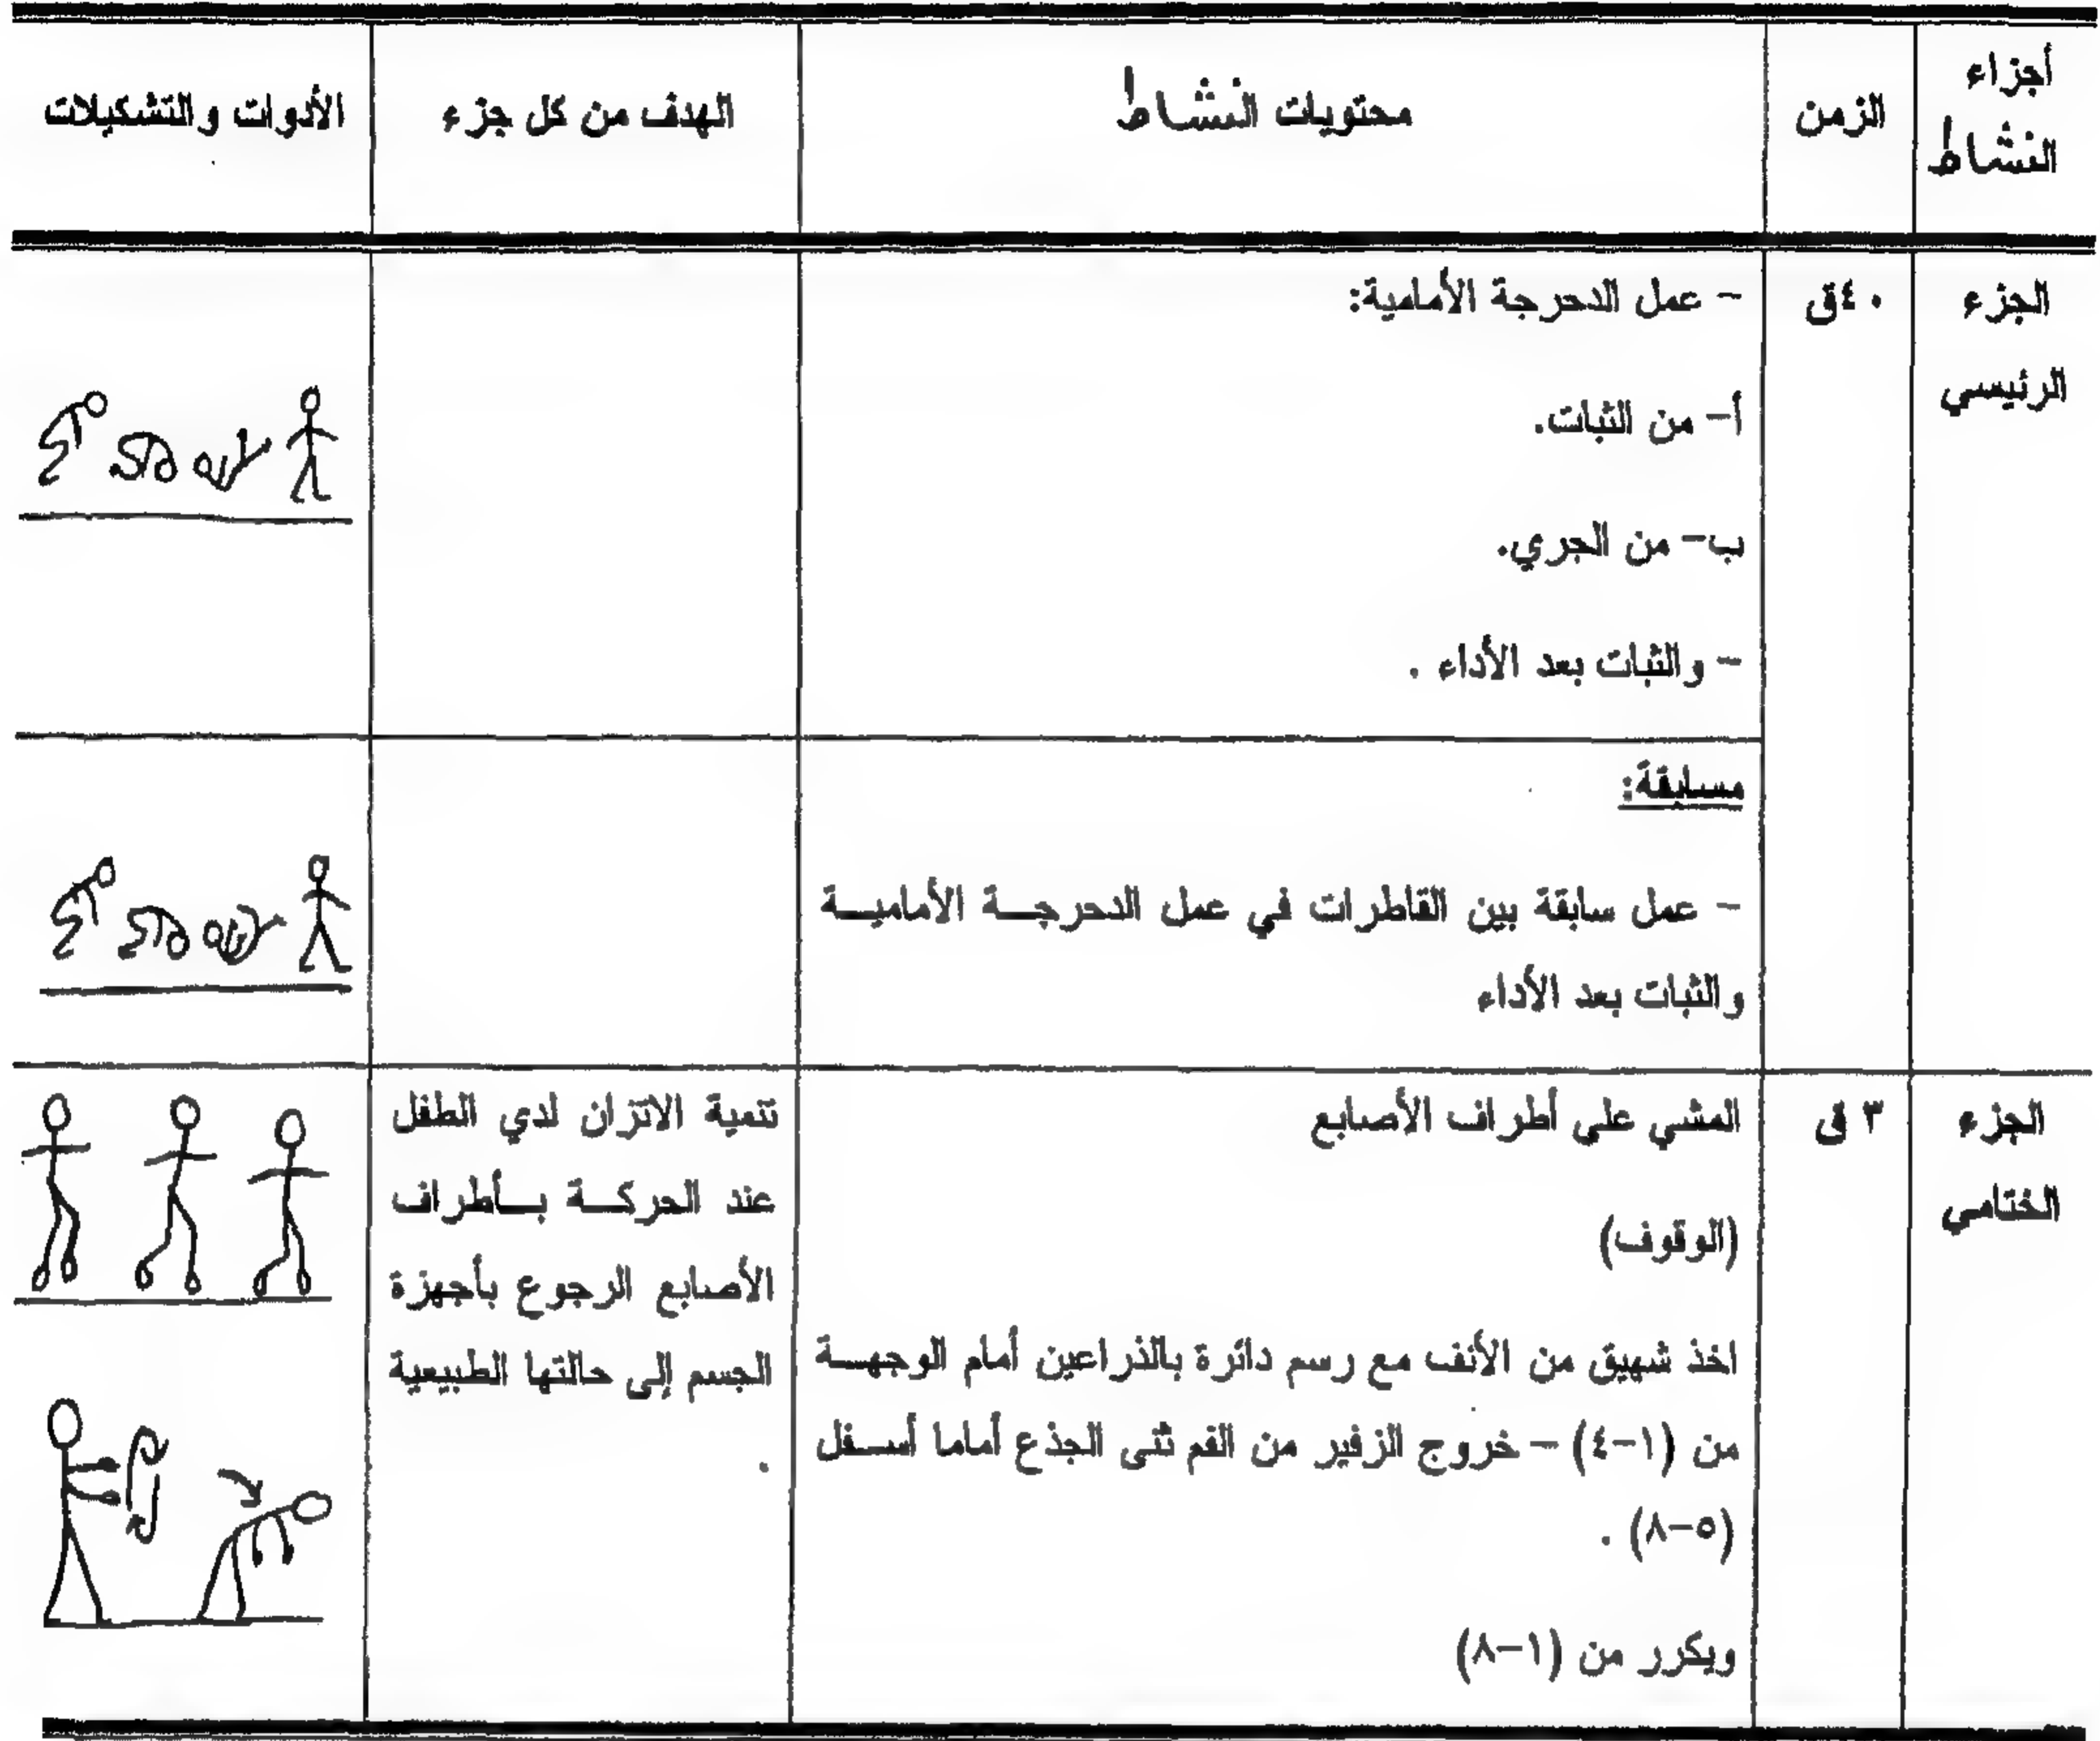 أجزاء
النشاط
الزمن
محتويات النشاط
الهدف من كل جزء
الأدوات والتشكيلات
الجزء
الرئيسي
٤٠ق
- عمل الدحرجة الأمامية:
أ- من الثبات.
ب- من الجري.
- والثبات بعد الأداء .
مسابقة:
- عمل سابقة بين القاطرات في عمل الدحرجة الأمامية
والثبات بعد الأداء
الجزء
الختامي
٣ ق
المشي علي أطراف الأصابع
(الوقوف)
اخذ شهيق من الأنف مع رسم دائرة بالذراعين أمام الوجهة
من (١-٤) - خروج الزفير من الفم ثنى الجذع أماما أسفل
(٥-٨) .
ويكرر من (١-٨)
تنمية الاتزان لدي الطفل
عند الحركة بأطراف
الأصابع الرجوع بأجهزة
الجسم إلى حالتها الطبيعية
.